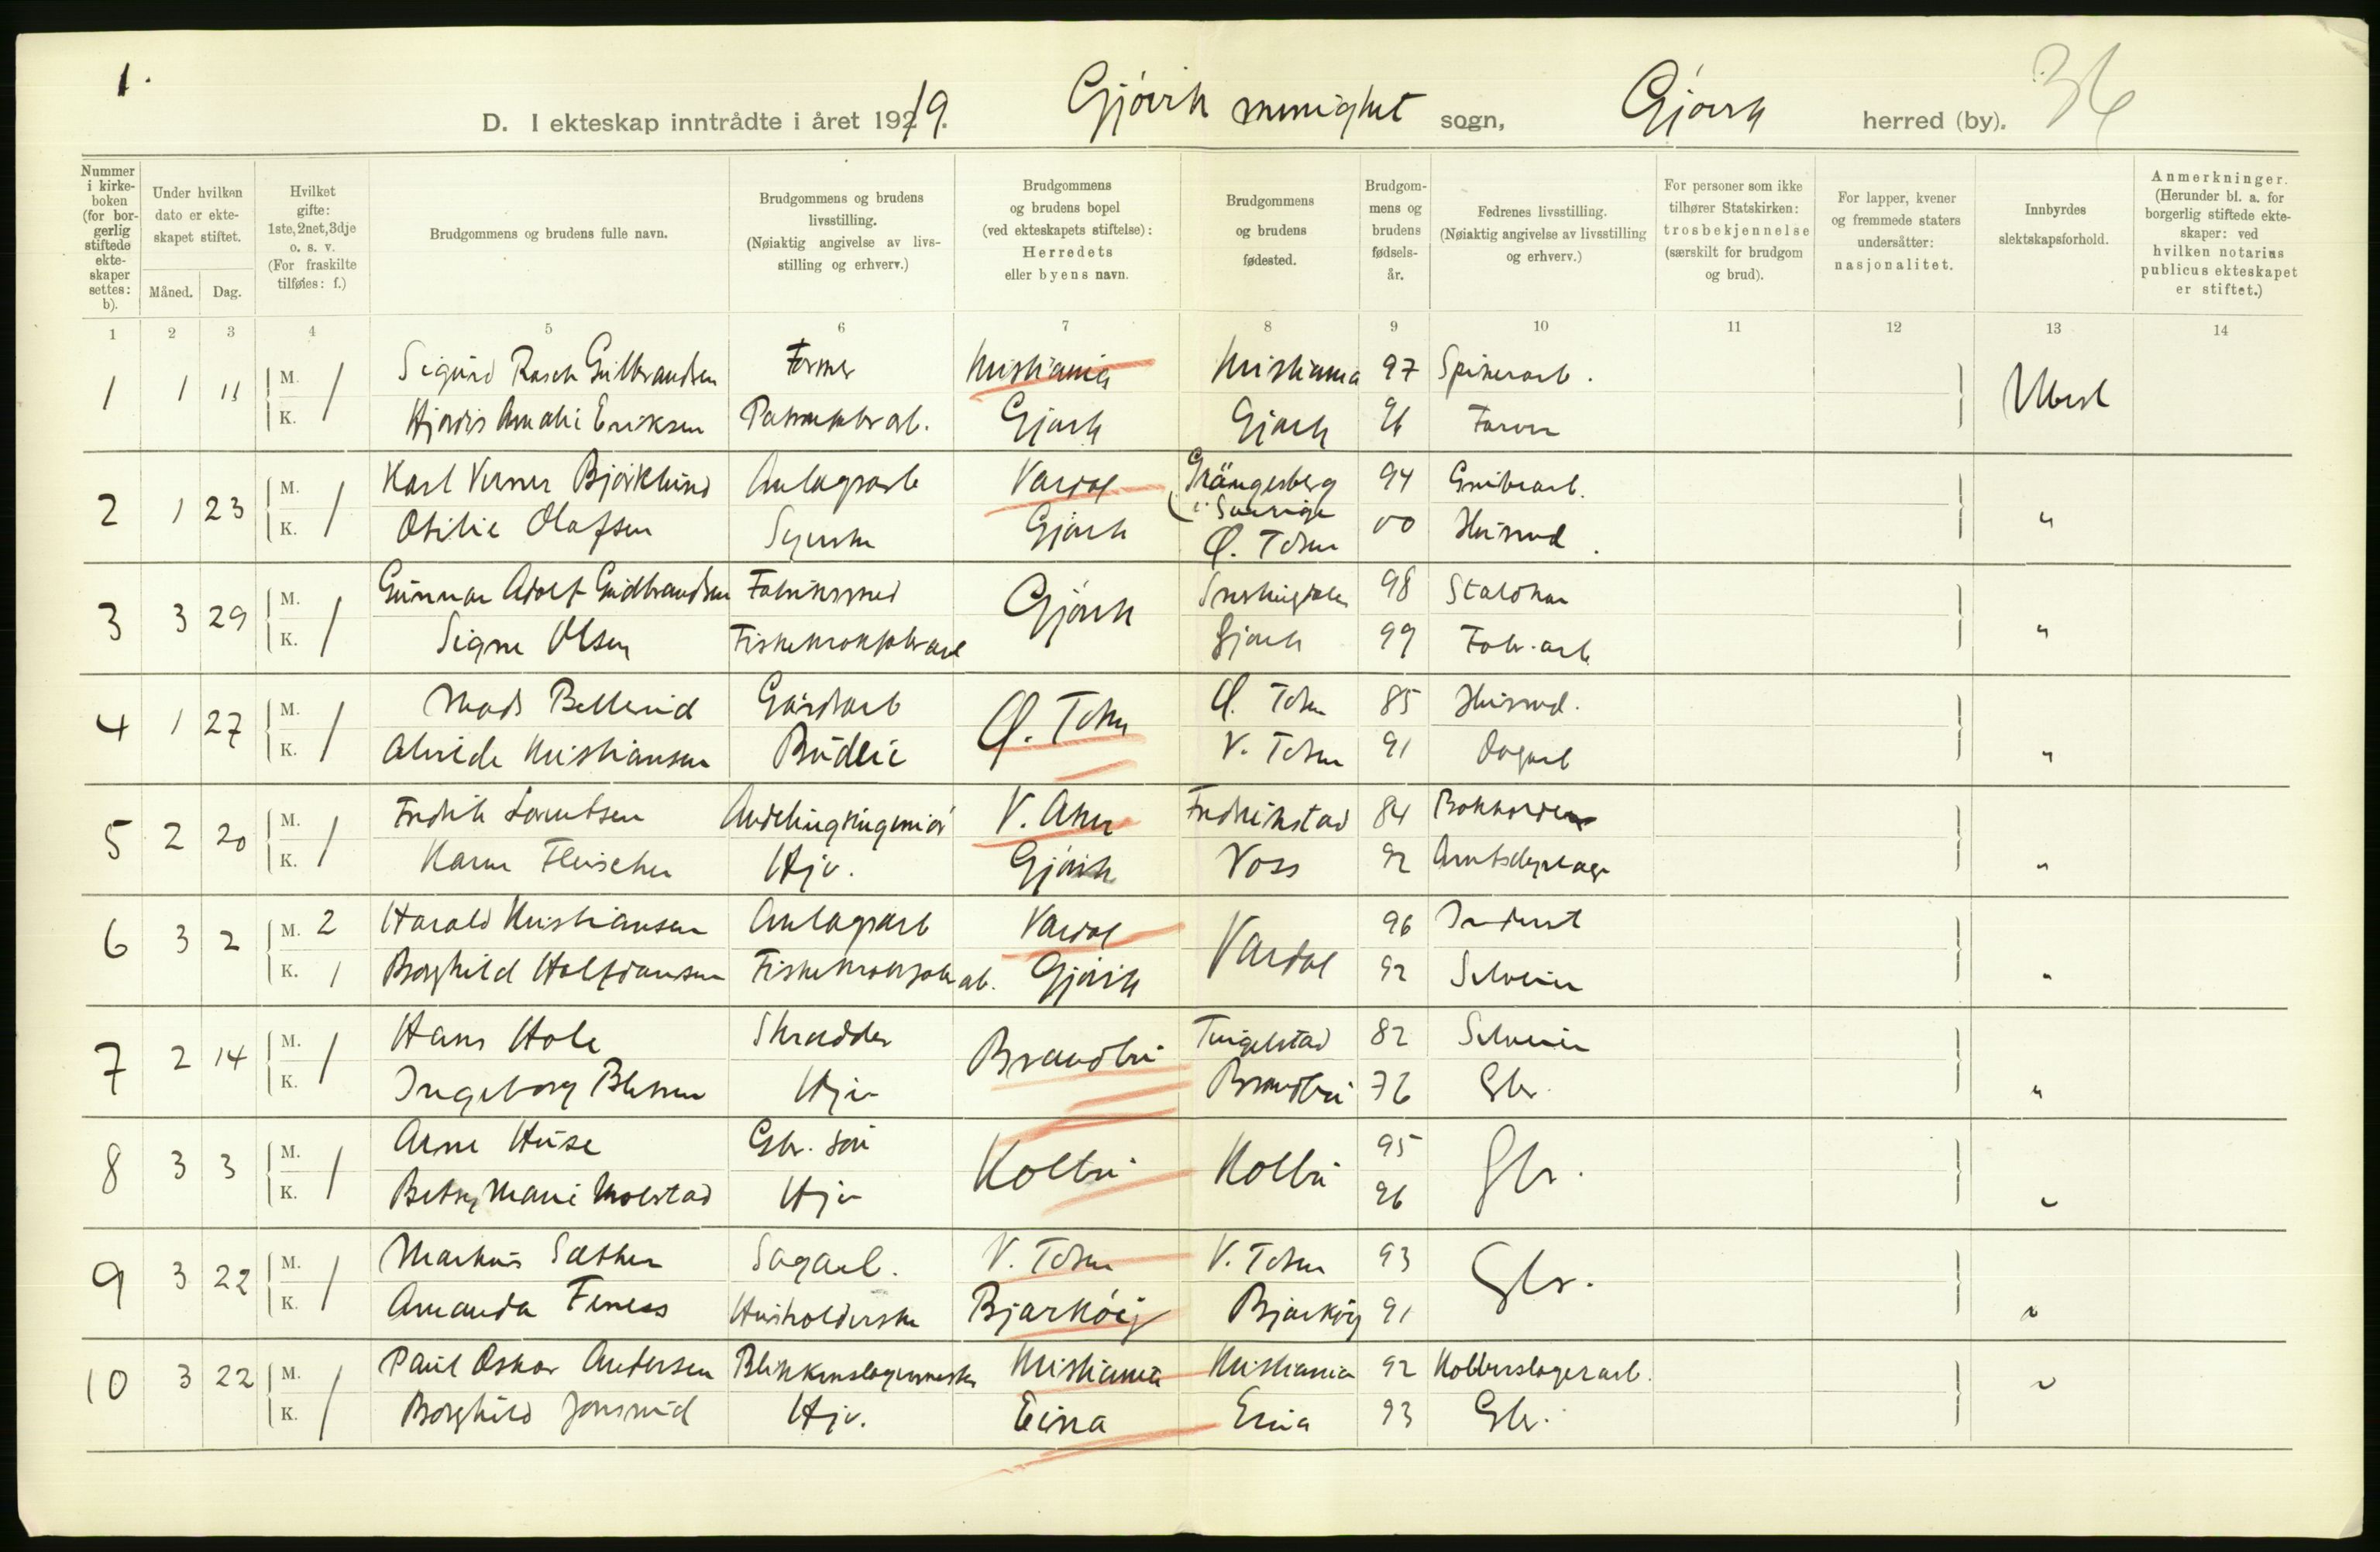 1.
D. I ekteskap inntrådte i året 1921/9. Gjøvik menighet sogn, Gjøvik herred (by). 36
Nummer i kirke-boken (for bor-gerlig stiftede ekte-skaper settes: b).
Under hvilken dato er ekte-skapet stiftet.
Måned. Dag.
Hvilket gifte: 1ste, 2net, 3dje o. s. v. (For fraskilte tilføies: f.)
Brudgommens og brudens fulle navn.
Brudgommens og brudens livsstilling. (Nøiaktig angivelse av livs-stilling og erhverv.)
Brudgommens og brudens bopel (ved ekteskapets stiftelse): Herredets eller byens navn.
Brudgommens og brudens fødested.
Brudgom-mens og brudens fødsels-år.
Fedrenes livsstilling. (Nøiaktig angivelse av livsstilling og erhverv.)
For personer som ikke tilhører Statskirken: trosbekjennelse (særskilt for brudgom og brud).
For lapper, kvener og fremmede staters undersåtter: nasjonalitet.
Innbyrdes slektskapsforhold.
Anmerkninger. (Herunder bl. a. for borgerlig stiftede ekte-skaper: ved hvilken notarius publicus ekteskapet er stiftet.)
1 2 3 4 5 6 7 8 9 10 11 12 13 14
1 1 11 M. / Sigurd Rasch Gulbrandsen Former Kristiania Kristiania 97 Spikerarb. Ubesl
K. Hjørdis Amalie Eriksen Gjøvik Gjøvik 96 Farver
2 1 23 M. / Karl Verner Bjørklund Anlagsarb Vardal Grängesberg i Sverige 94 Grubearb. "
K. Otilie Olafsen Syerske Gjøvik Ø. Toten 00 Husmd.
3 3 29 M. / Gunnar Adolf Gudbrandsen Fabriksmed Gjøvik 98 "
K. Signe Olsen Fiskekrokfabrarb Gjøvik 99 Fabr.arb
4 1 27 M. / Mads Bellerud Gårdsarb Ø. Toten Ø. Toten 85 Husmd. "
K. Alvide Kristiansen Budeie V. Toten 91 Dagarb
5 2 20 M. / Fredrik Lorentsen Avdelingsingeniør V. Aker Fredrikstad 84 Bokholder "
K. Karen Fleischer Hjv. Gjøvik Voss 92
6 3 2 M. 2 Harald Kristiansen Anlagsarb Vardal Vardal 96 Inderst "
K. 1 Borghild Halfdansen Fiskekrokfabr arb. Gjøvik 92 Selveier
7 2 14 M. / Hans Hole Skredder Brandbu Tingelstad 82 Selveier "
K. Ingeborg Hjv Brandbu 76 Gbr.
8 3 3 M. / Arne Huse Gbr. søn Kolbu Kolbu 95 Gbr. "
K. Betsy Marie Molstad Hjv 96
9 3 22 M. / Markus Sæther Sagarb. V. Toten V. Toten 93 Gbr. "
K. Amanda Finess Husholderske Bjarkøy Bjarkøy 91
10 3 22 M. / Paul Oskar Andersen Blikkenslagermester Kristiania Kristiania 92 Kobberslagerarb. "
K. Borghild Jonsrud Hjv. Eina Eina 93 Gbr.